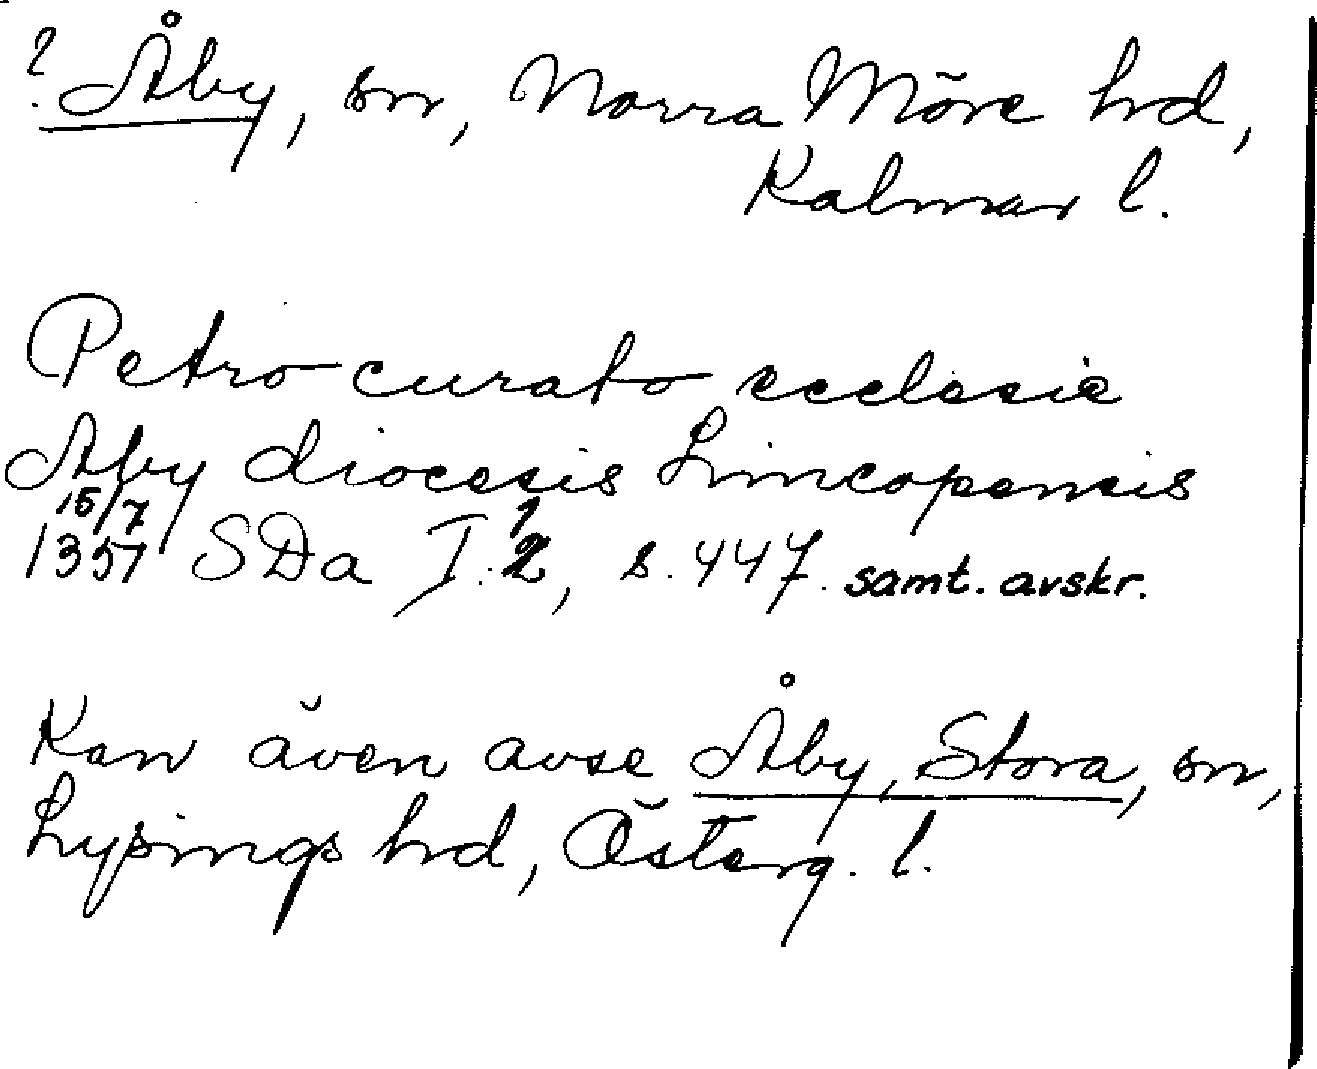 ? Åby, sn, Norra Möre hd,
Kalmar l.
Petro curato ecclesie
Aby diocesis Lincopensis
15/7
1357 SDa I:1, s. 447. samt. avskr.
Kan även avse Åby, Stora, sn,
Lysings hd, Österg. l.